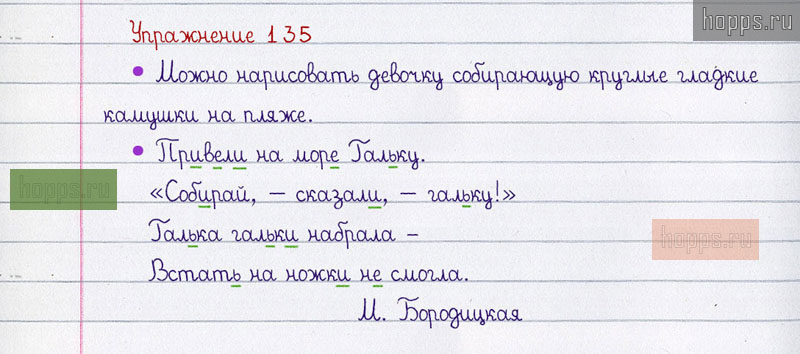 hopps.ru
Упражнение 135
• Можно нарисовать девочку собирающую круглые гладкие
камушки на пляже.
• Привели на море Гальку.
hopps.ru
«Собирай, – сказали, – гальку!»
Галька гальки набрала –
hopps.ru
Встать на ножки не смогла.
М. Бородицкая